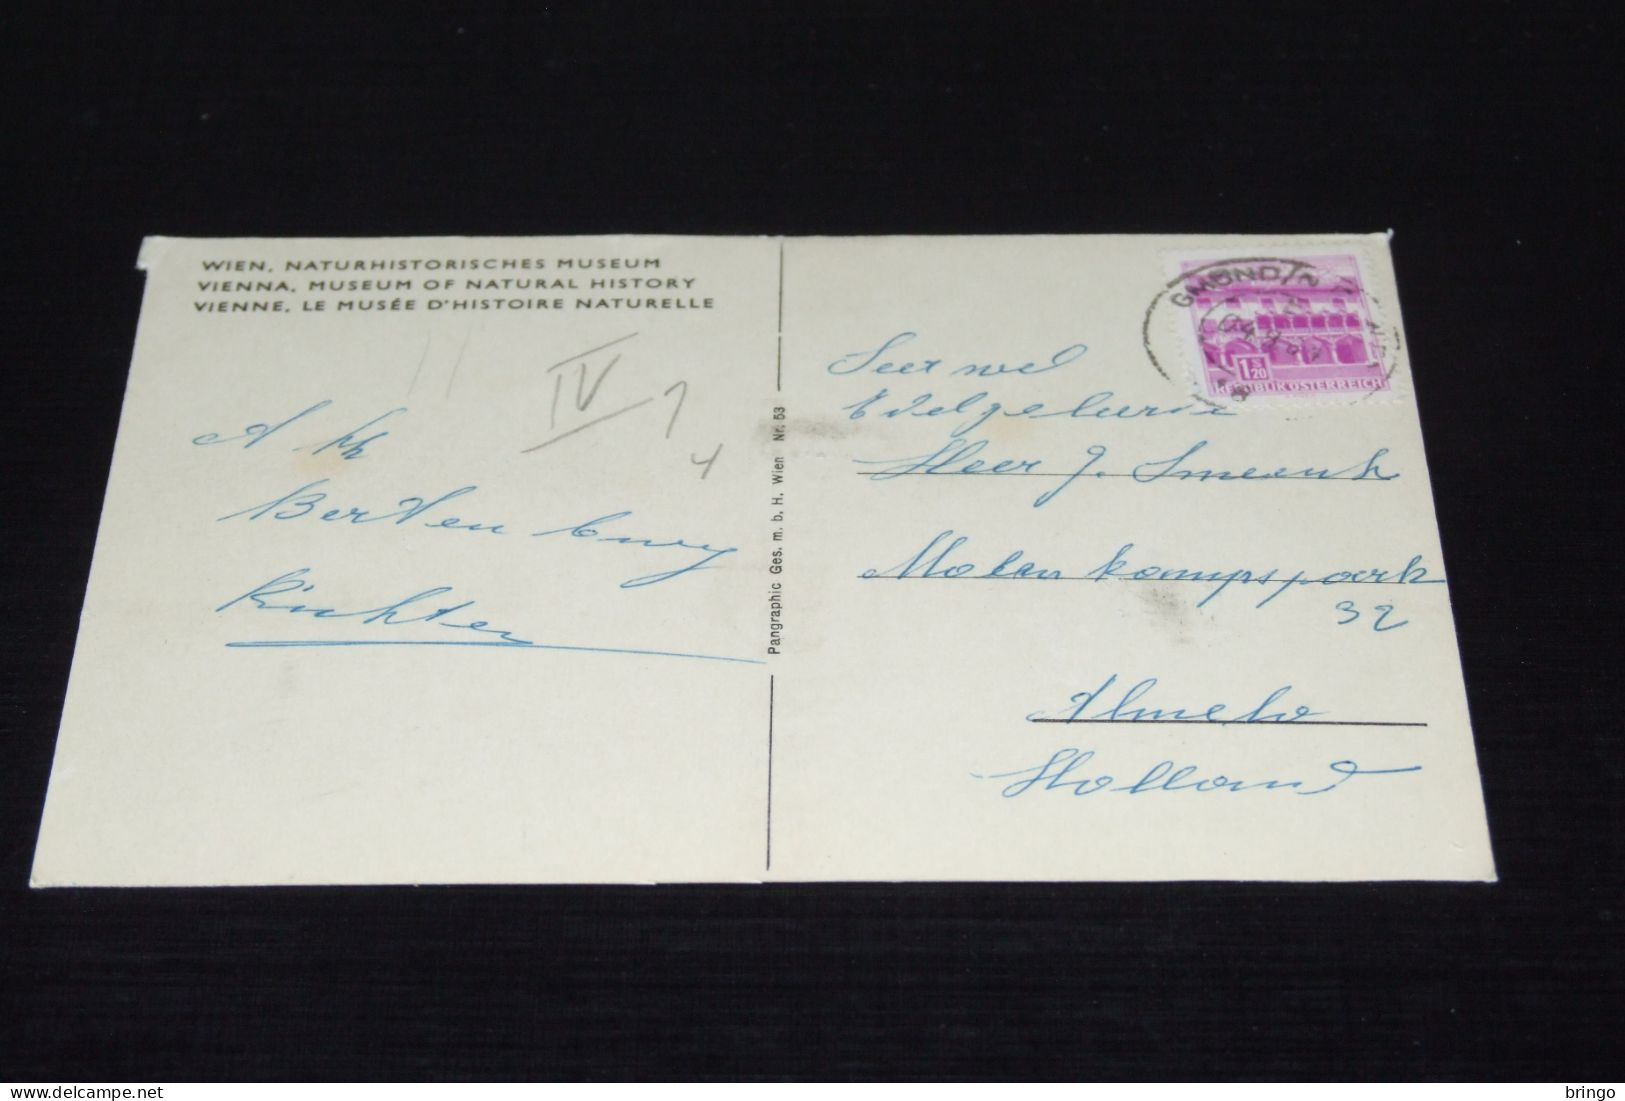 WIEN, NATURHISTORISCHES MUSEUM
VIENNA, MUSEUM OF NATURAL HISTORY
VIENNE, LE MUSÉE D'HISTOIRE NATURELLE
IV
4
Richter
Pangraphic Ges. m. b. H. Wien Nr. 53
GMÜND
1.20
REPUBLIK ÖSTERREICH
Seer wel
Edelgeboren
Heer J. Smeenk
Molenkampspark
32
Almelo
Holland
delcampe.net
bringo